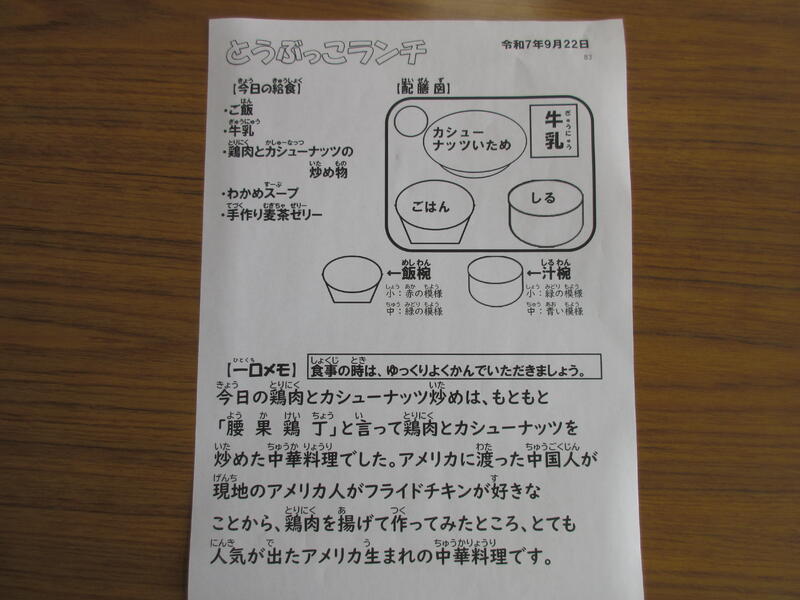 とうぶっこランチ
令和7年9月22日
83
【今日の給食】
・ご飯
・牛乳
・鶏肉とカシューナッツの
炒め物
・わかめスープ
・手作り麦茶ゼリー
【配膳図】
カシュー
ナッツいため
牛乳
ごはん
しる
←飯椀
小：赤の模様
中：緑の模様
←汁椀
小：緑の模様
中：青い模様
【一口メモ】
食事の時は、ゆっくりよくかんでいただきましょう。
今日の鶏肉とカシューナッツ炒めは、もともと
「腰果鶏丁」と言って鶏肉とカシューナッツを
炒めた中華料理でした。アメリカに渡った中国人が
現地のアメリカ人がフライドチキンが好きな
ことから、鶏肉を揚げて作ってみたところ、とても
人気が出たアメリカ生まれの中華料理です。